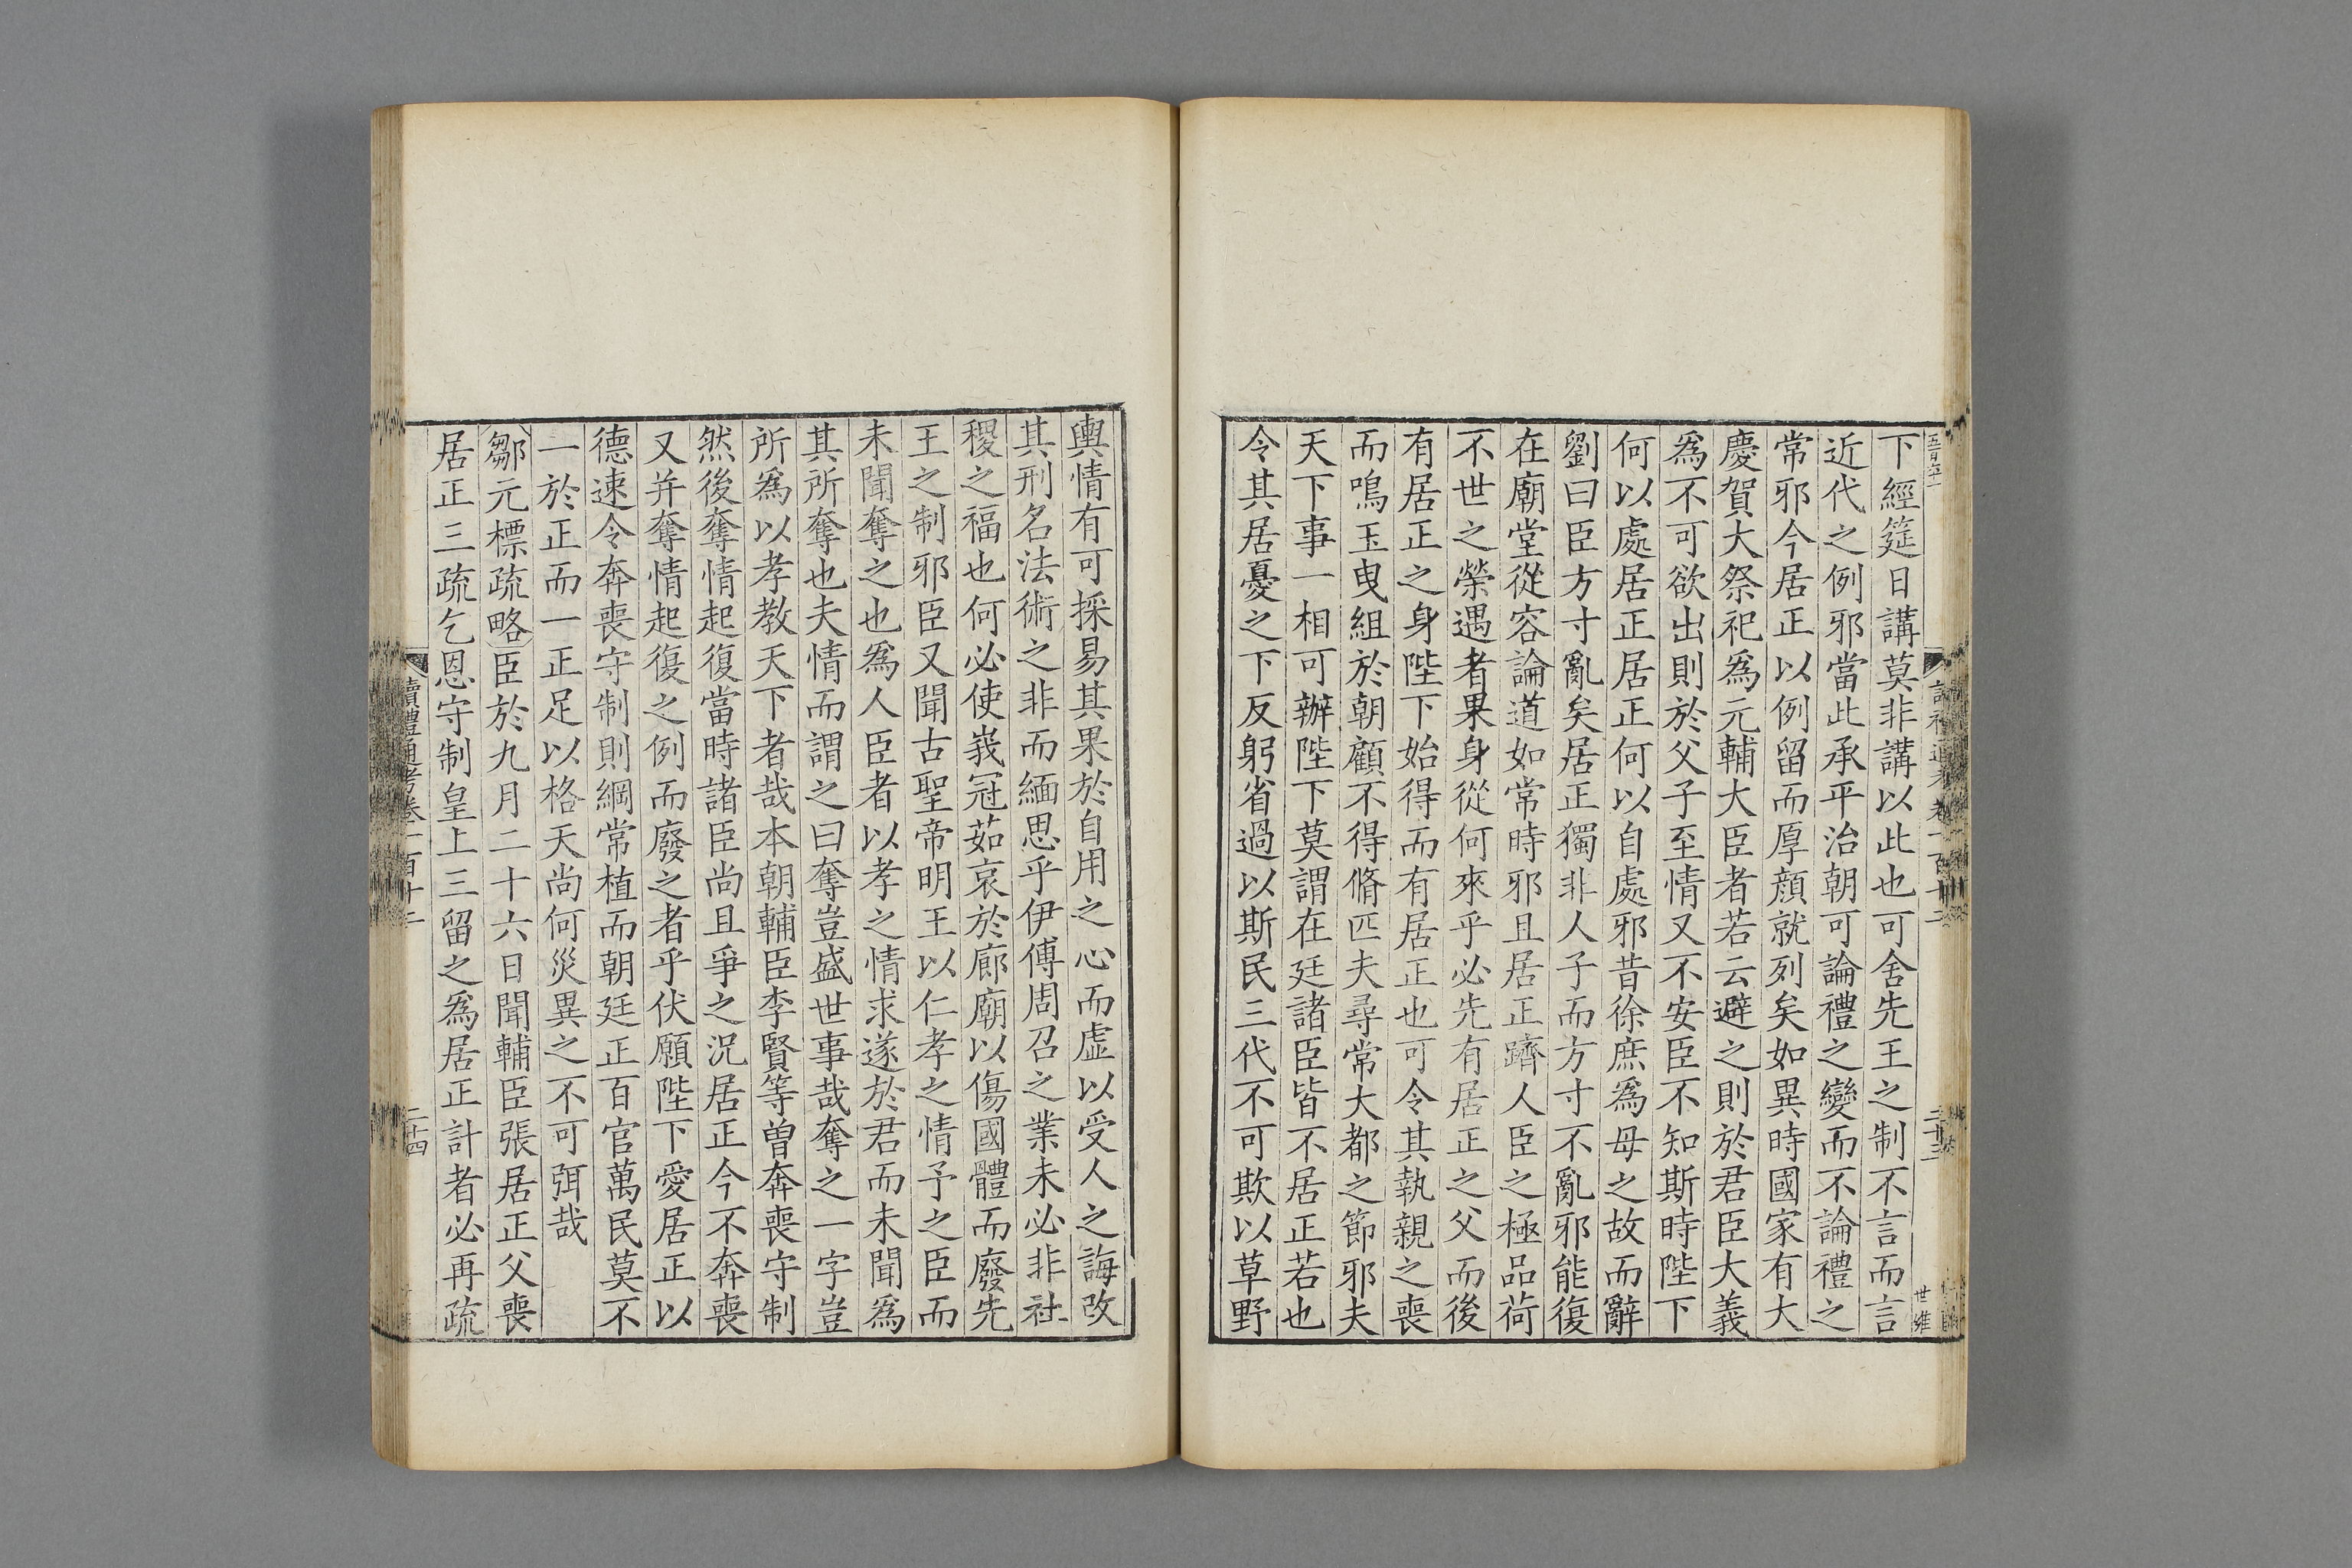 下經筵日講莫非講以此也可舍先王之制不言而言
近代之例邪當此承平治朝可論禮之變而不論禮之
常邪今居正以例留而厚顔就列矣如異時國家有大
慶賀大祭祀爲元輔大臣者若云避之則於君臣大義
爲不可欲出則於父子至情又不安臣不知斯時陛下
何以處居正居正何以自處邪昔徐庶爲母之故而辭
劉曰臣方寸亂矣居正獨非人子而方寸不亂邪能復
在廟堂從容論道如常時邪且居正躋人臣之極品荷
不世之榮遇者果身從何來乎必先有居正之父而後
有居正之身陛下始得而有居正也可令其執親之喪
而鳴玉曳組於朝顧不得脩匹夫尋常大都之節邪夫
天下事一相可辦陛下莫謂在廷諸臣皆不居正若也
令其居憂之下反躬省過以斯民三代不可欺以草野
輿情有可採易其果於自用之心而虛以受人之誨改
其刑名法術之非而緬思乎伊傅周召之業未必非社
稷之福也何必使峩冠茹哀於廊廟以傷國體而廢先
王之制邪臣又聞古聖帝明王以仁孝之情予之臣而
未聞奪之也爲人臣者以孝之情求遂於君而未聞爲
其所奪也夫情而謂之曰奪豈盛世事哉奪之一字豈
所爲以孝教天下者哉本朝輔臣李賢等曽奔喪守制
然後奪情起復當時諸臣尚且爭之況居正今不奔喪
又并奪情起復之例而廢之者乎伏願陛下愛居正以
德速令奔喪守制則綱常植而朝廷正百官萬民莫不
一於正而一正足以格天尚何災異之不可弭哉
鄒元標疏略臣於九月二十六日聞輔臣張居正父喪
居正三疏乞恩守制皇上三留之爲居正計者必再疏
讀禮通考卷一百十二
二十四